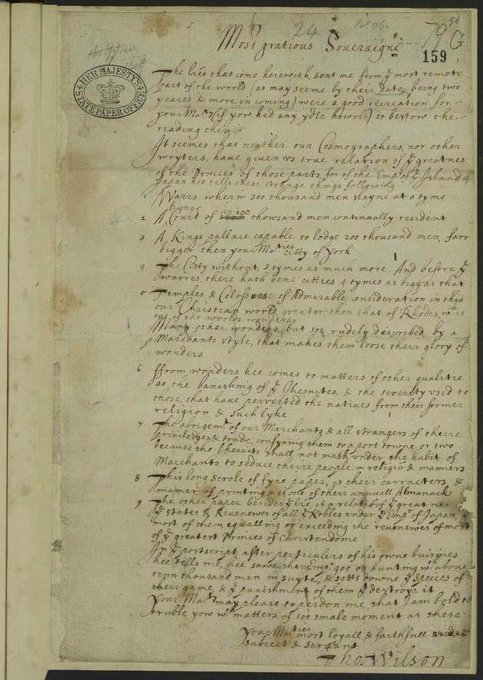 24
79
G
Most gratious Soueraigne
159
HER MAJESTY'S
STATE PAPER OFFICE
The lres that come herewith, sent me form yͤ most remote
part of the world (as may seeme by their date, being two
yeares & more in coming) were a good recreation for
your Maᵗⁱᵉ (if yow had any ydle howres) to bestow the
reading therin
It seemes that neyther our Cosmographers, nor other
wryters, haue given vs true relation of yͤ greatnes
of the Princes of those parts, for of the Emp of yͤ Island of
Japan hee tells these strange things following
1 Warrs wherin 300 thousand men slayne at a tyme
2 A Court of thousand men continually resident
3 A Kings pallace capable to lodge 200 thousand men, farr
bigger then your Maᵗⁱᵉˢ Citty of York
4 The Citty without, 3 tymes as much more And before yͤ
warres there hath bene citties 4 tymes as bigg as that
5 Temples & Colosses of Admirable consideration in this
our Christian world, greater then that of Rhodes, wᶜʰ
one of the worlds wonders
Many other wonders, but soe rudely described by a
Marchants style, that makes them loose their glory of
wonders
6 ffrom wonders hee comes to matters of other qualitie
as the banishing of yͤ Jhesuites, & the severity vsed to
those, that have perverted the natives from their former
religion & such lyke
7 The abrigemᵗ of our Marchants & all strangers of theire
priviledges & trade, confyning them to a port towne or two
because the Jhesuits shall not mask vnder the habit of
Marchants to seduce theire people in religiō & maners
8 This long scrole of fyne paper, is their carracters, &
manner of printing & is one of their annuall Almanacks
9 The other paper besides yͤ lre is a relatiō of yͤ great
states & Revenewes of all yͤ Nobles vnder yͤ Emp of Japan
most of them equalling or exceeding the revenewes of most
of yͤ greatest Princes of Christendome
In yͤ postscript, after perticulers of his owne buisines
hee tells me, hee sawe them goe on hunting wᵗʰ above
ten thousand men in suyte, & setts downe yͤ species of
their game & yͤ punishment of them yᵗ destroy it
Your Maᵗⁱᵉ may please to perdon me that I am bold to
truble yow wᵗʰ matters of soe smale moment as these
Your Maᵗⁱᵉˢ most loyall & faithfull
subiect & servant
Tho: Wilson